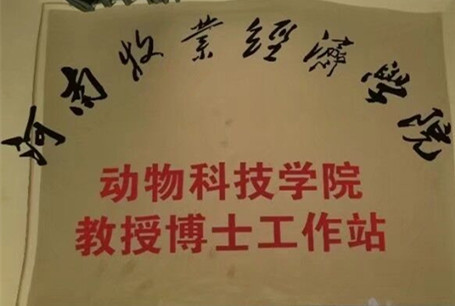 河南牧业经济学院
动物科技学院
教授博士工作站